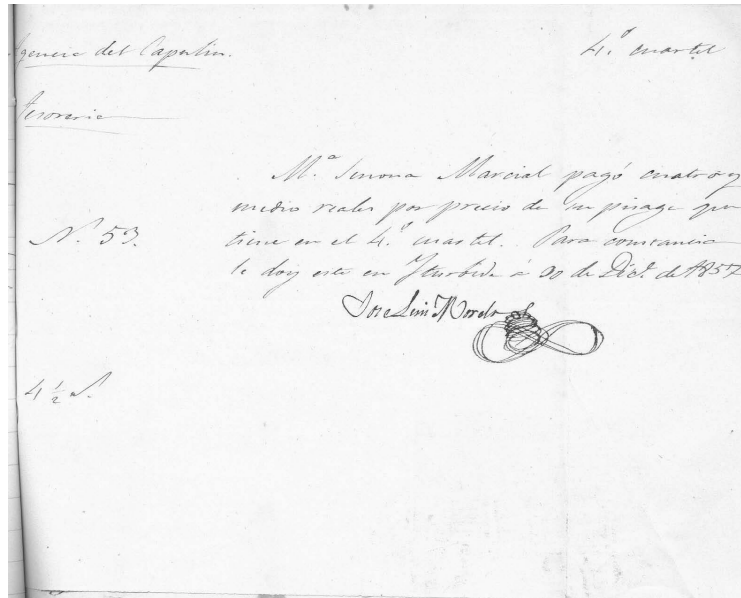 Agencia del Capulin.
4.º cuartel
Tesoreria
M.ª Simona Marcial pagó cuatro y
medio reales por precio de un pisage que
Nº. 53.
tiene en el 4.º cuartel. Para constancia
le doy este en Yturbide á 20 de Dic.e de 1857
Jose Luis Morelos
4 ½ r.s